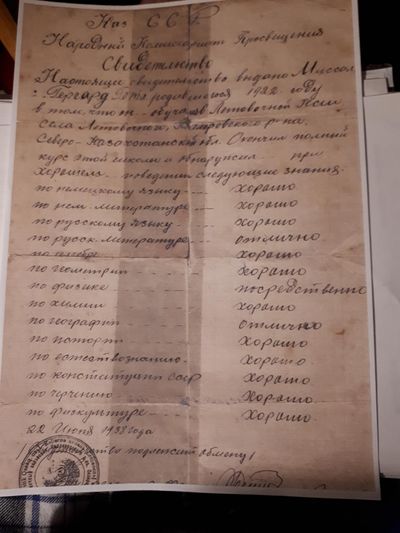 Каз ССР
Народный Комиссариат Просвещения
Свидетельство
Настоящее свидетельство выдано
Гергард родившемуся 1922 году
в том, что он обучался в
села района,
Северо-Казахстанской обл. Окончил полный
курс этой школы и обнаружил при
поведении следующие знания:
по немецкому языку — хорошо
по нем. литературе — хорошо
по русскому языку — хорошо
по русск. литературе — отлично
по алгебре хорошо
по геометрии хорошо
по физике посредственно
по химии хорошо
по географии отлично
по истории хорошо
по естествознанию хорошо
по конституции СССР хорошо
по черчению хорошо
по физкультуре хорошо
22 Июня 1938 года
подлежит обмену)